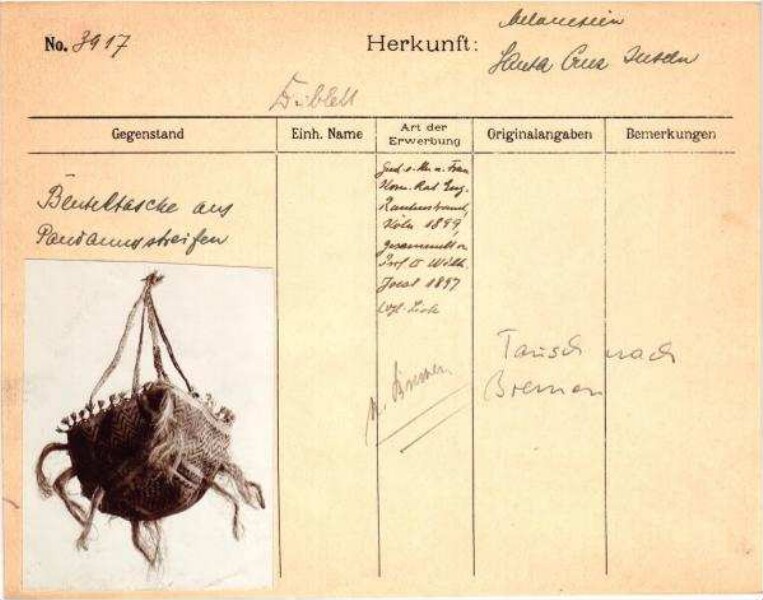 No. 3917
Herkunft:
Melanesien
Santa Cruz Inseln
Dublett
Gegenstand
Einh. Name
Art der
Erwerbung
Originalangaben
Bemerkungen
Beuteltasche aus
Pandanusstreifen
Frau
Kom. Rat Eug.
Rautenstrauch,
Köln 1899,
gesammelt v.
Prof. D Wilh.
Joest 1897
n. Bremen
Tausch nach
Bremen